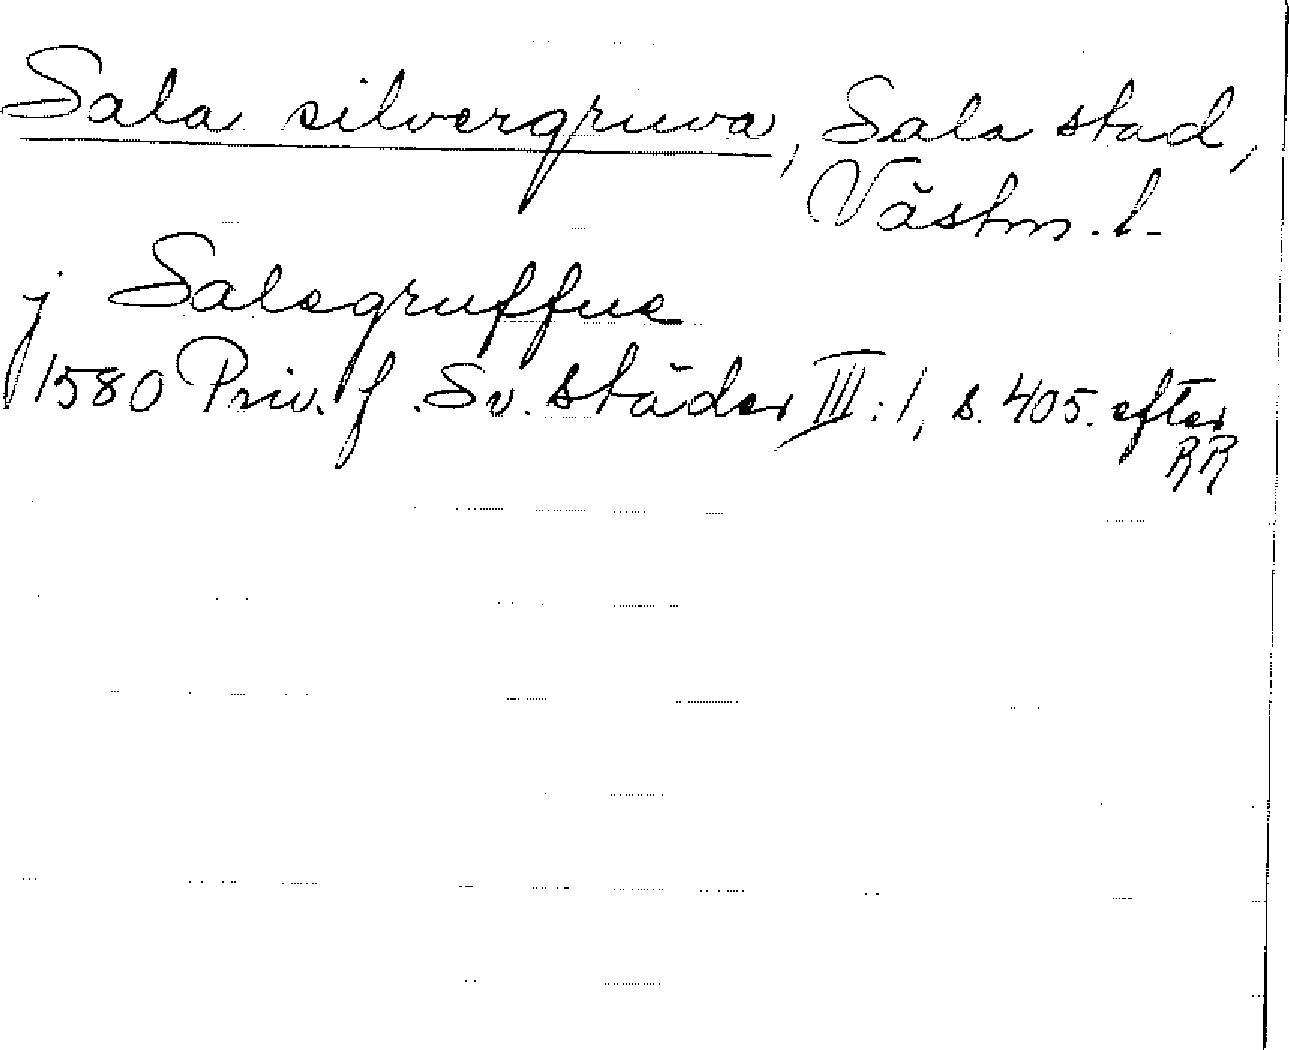 Sala silvergruva, Sala stad,
Västm. l.
j Salagruffue
1580 Priv. f. Sv. städer III:1, s. 405. efter
RR